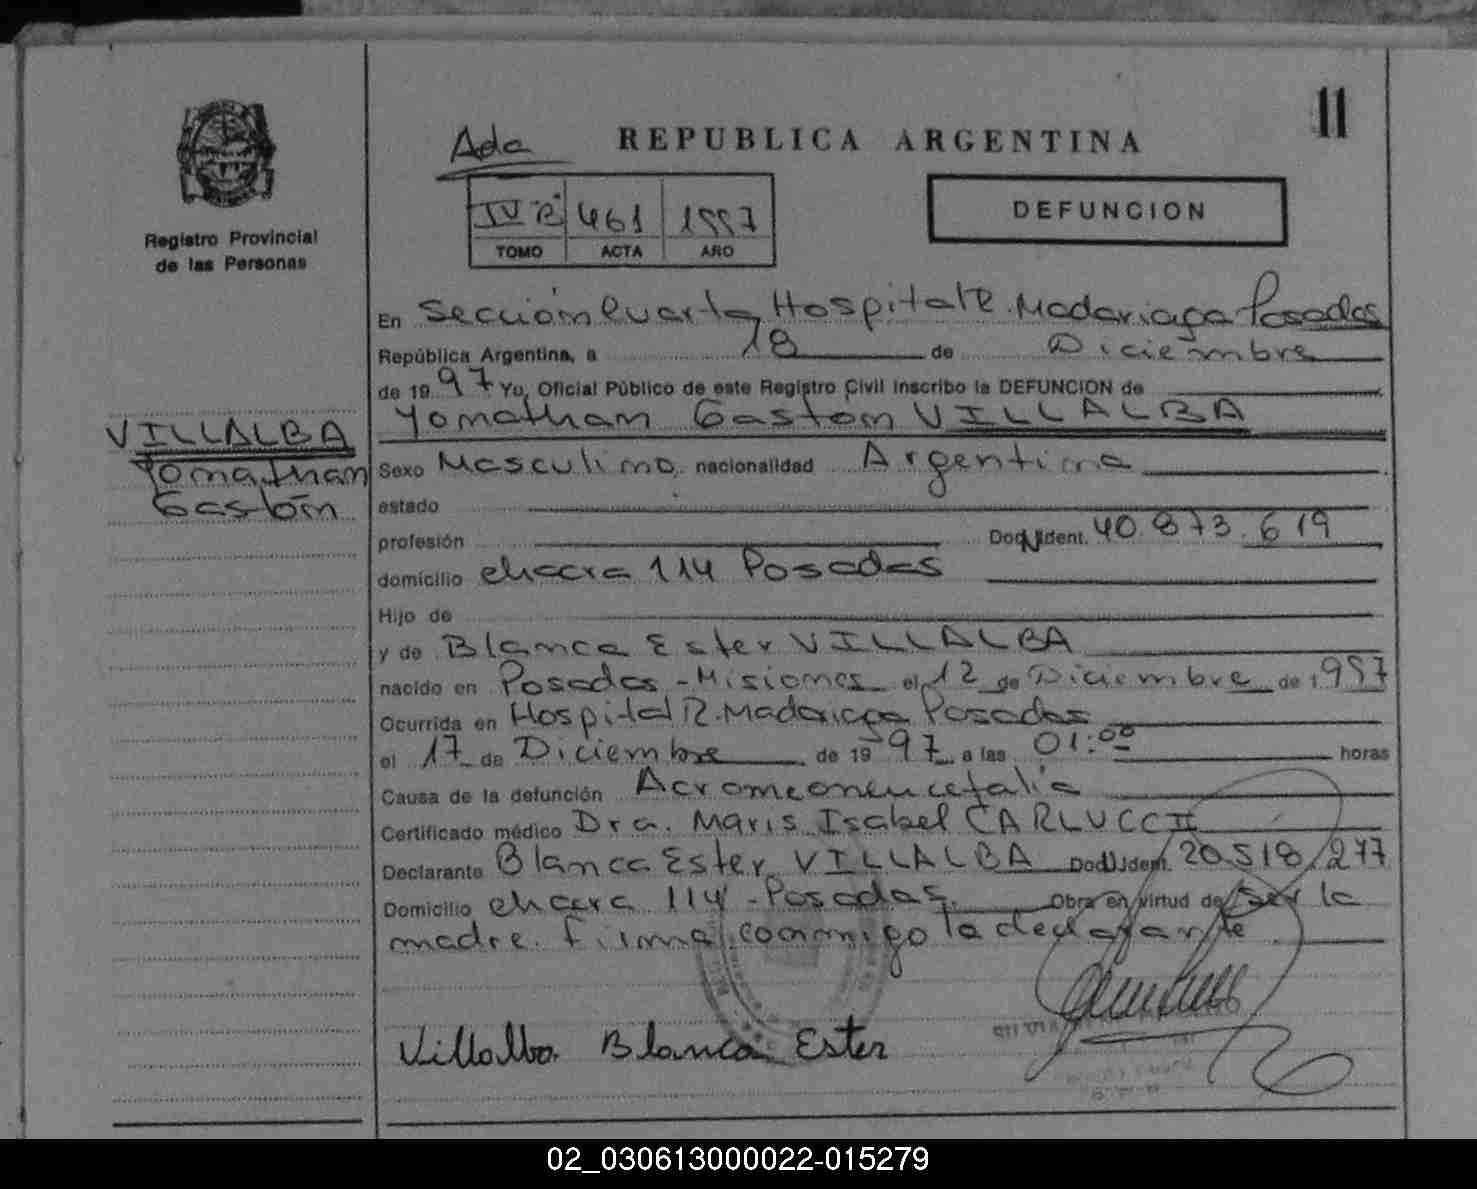 11
Ada REPUBLICA ARGENTINA
Registro Provincial
de las Personas
461 1997
TOMO ACTA AÑO
DEFUNCION
En Sección Cuarta Hospital R. Madariaga Posadas
República Argentina, a 18 de Diciembre
de 1997 Yo, Oficial Público de este Registro Civil inscribo la DEFUNCION de
Yonathan Gaston VILLALBA
VILLALBA
Yonathan
Gastón
Sexo Masculino nacionalidad Argentina
estado
profesión Doc. N. Ident. 40.873.619
domicilio chacra 114 Posadas
Hijo de
y de Blanca Ester VILLALBA
nacido en Posadas - Misiones el 12 de Diciembre de 1997
Ocurrida en Hospital R. Madariaga Posadas
el 17 de Diciembre de 1997 a las 01:00 horas
Causa de la defunción
Certificado médico Dra. Maris Isabel CARLUCCI
Declarante Blanca Ester VILLALBA Doc. U. Ident. 20.518.277
Domicilio chacra 114 - Posadas. Obra en virtud de ser la
madre. firma conmigo la declarante
Villalba Blanca Ester
02_030613000022-015279